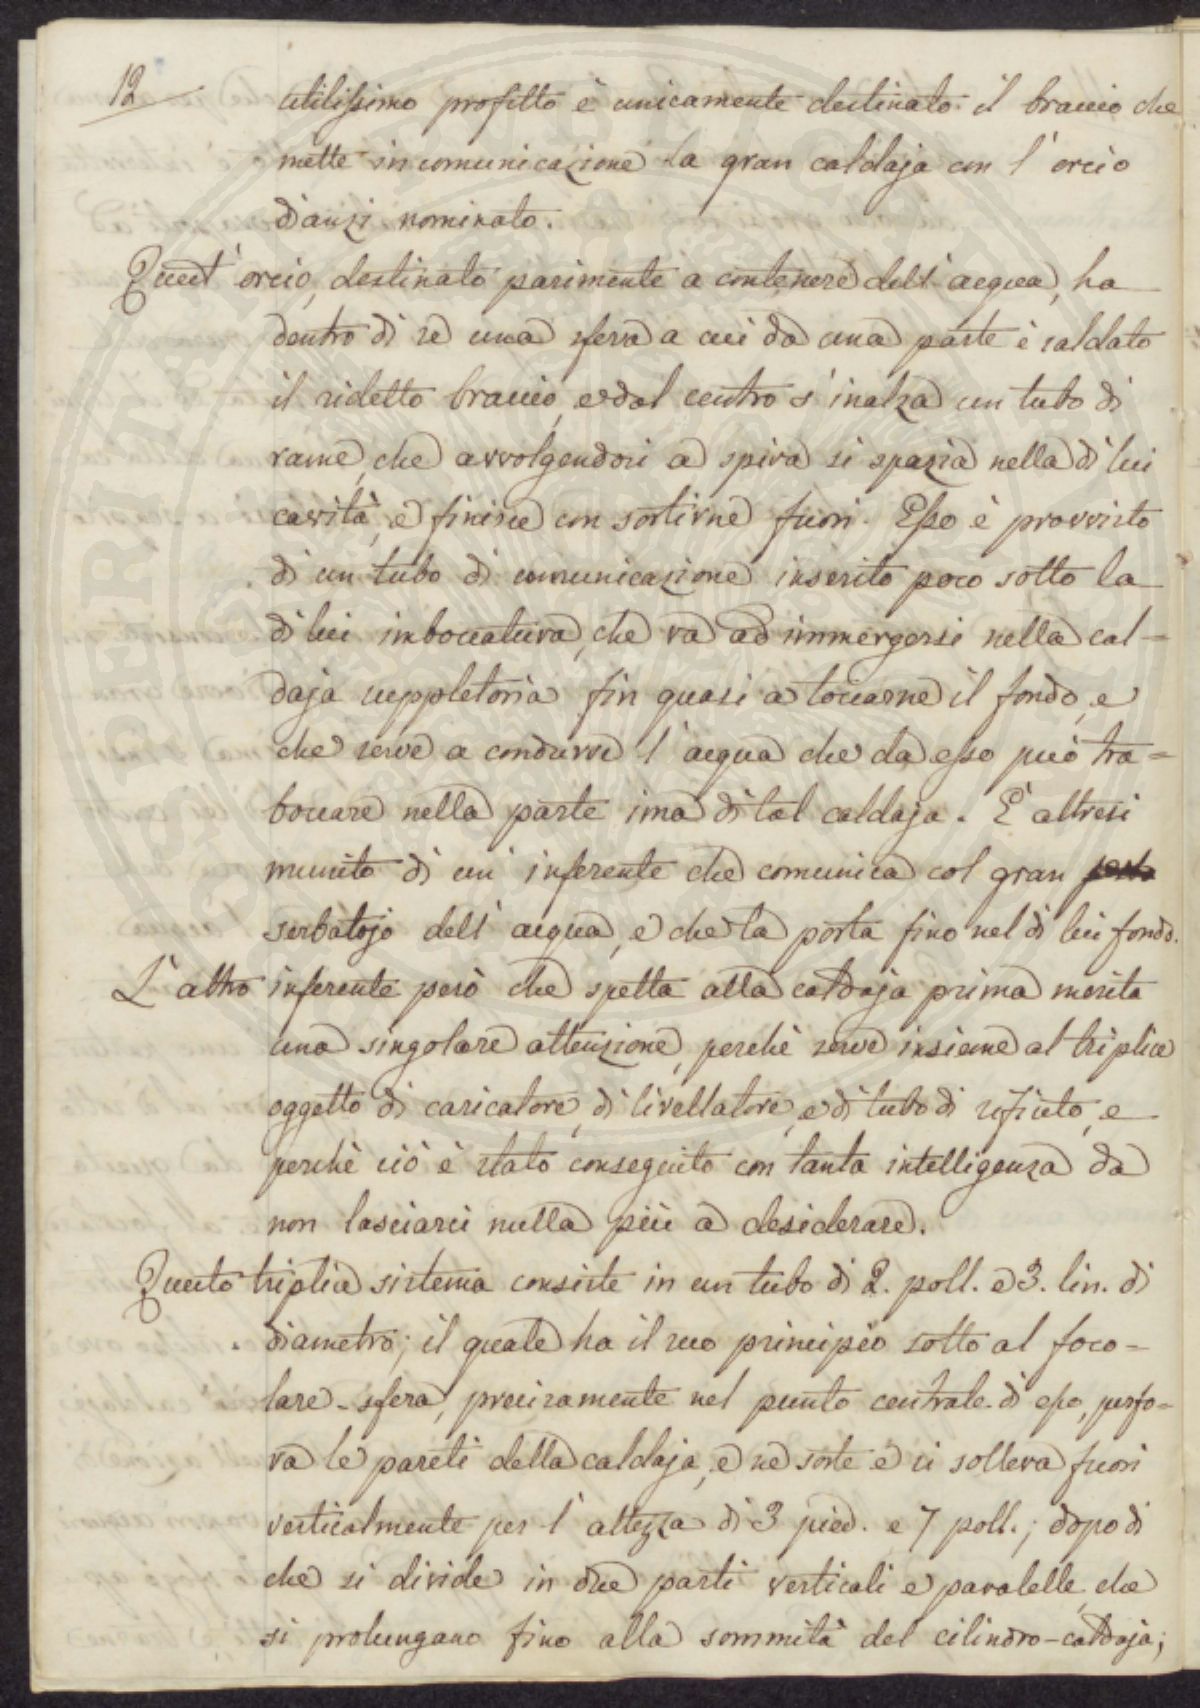 12
utilissimo profitto è unicamente destinato il braccio che
mette in comunicazione la gran caldaja con l' orcio
dianzi nominato.
Quest' orcio, destinato parimente a contenere dell' acqua, ha
dentro di se una sfera a cui da una parte è saldato
il ridetto braccio, e dal centro s' inalza un tubo di
rame, che avvolgendosi a spira si spazia nella di lui
cavità, e finisce con sortirne fuori. Esso è provvisto
di un tubo di comunicazione inserito poco sotto la
di lui imboccatura, che va ad immergersi nella cal=
daja suppletoria fin quasi a toccarne il fondo, e
che serve a condurre l' acqua che da esso può tra=
boccare nella parte ima di tal caldaja. È altresi
munito di un' inferente che comunica col gran
serbatojo dell' acqua, e che la porta fino nel di lui fondo.
L' altro inferente però che spetta alla caldaja prima merita
una singolare attenzione, perchè serve insieme al triplice
oggetto di caricatore, di livellatore, e di tubo di rifiuto, e
perchè ciò è stato conseguito con tanta intelligenza da
non lasciarci nulla più a desiderare.
Questo triplice sistema consiste in un tubo di 2. poll. e 3. lin. di
diametro; il quale ha il suo principio sotto al foco-
lare-sfera, precisamente nel punto centrale di esso, perfo=
ra le pareti della caldaja, e ne sorte e si solleva fuori
verticalmente per l' altezza di 3 pied. e 7 poll.; dopo di
che si divide in due parti verticali e paralelle, che
si prolungano fino alla sommità del cilindro-caldaja;